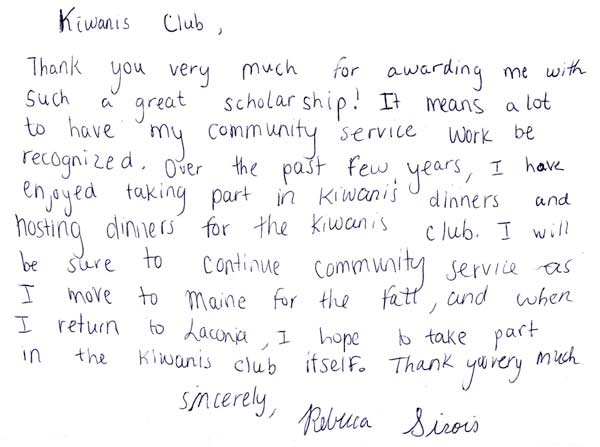 Kiwanis Club,
Thank you very much for awarding me with
such a great scholarship! It means a lot
to have my community service work be
recognized. Over the past few years, I have
enjoyed taking part in Kiwanis dinners and
hosting dinners for the Kiwanis club. I will
be sure to continue community service as
I move to Maine for the fall, and when
I return to Laconia, I hope to take part
in the Kiwanis club itself. Thank you very much
sincerely,
Rebecca Sirois